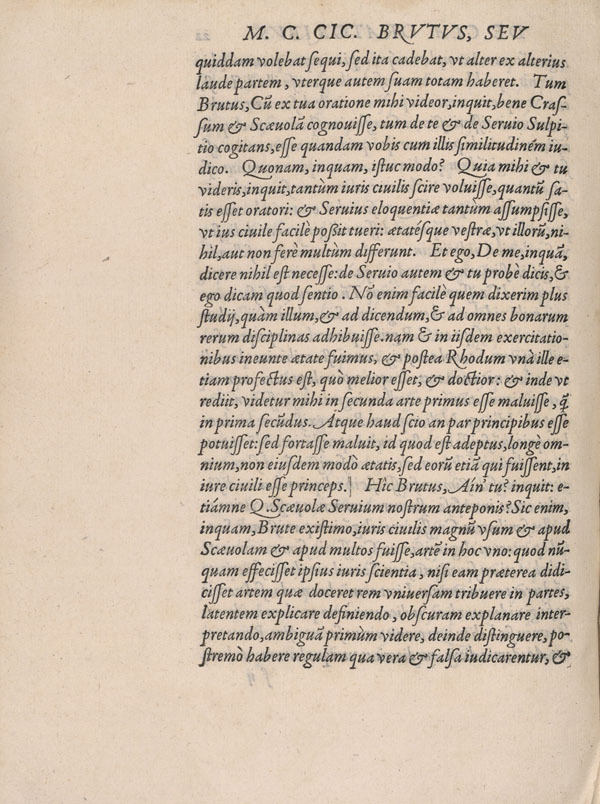 M. C. CIC. BRVTVS, SEV
quiddam volebat sequi, sed ita cadebat, vt alter ex alterius
laude partem, vterque autem suam totam haberet. Tum
Brutus, Cū ex tua oratione mihi videor, inquit, bene Cras-
sum & Scæuolā cognouisse, tum de te & de Seruio Sulpi-
tio cogitans, esse quandam vobis cum illis similitudiném iu-
dico. Quonam, inquam, istuc modo? Quia mihi & tu
videris, inquit, tantùm iuris ciuilis scire voluisse, quantū sa-
tis esset oratori: & Seruius eloquentiæ tantùm assumpsisse,
vt ius ciuile facilè possit tueri: ætatésque vestræ, vt illorū, ni-
hil, aut non ferè multùm differunt. Et ego, De me, inquā,
dicere nihil est necesse: de Seruio autem & tu probè dicis, &
ego dicam quod sentio. Nō enim facilè quem dixerim plus
studij, quàm illum, & ad dicendum, & ad omnes bonarum
rerum disciplinas adhibuisse. nam & in iisdem exercitatio-
nibus ineunte ætate fuimus, & postea Rhodum vnà ille e-
tiam profectus est, quò melior esset, & doctior: & inde vt
rediit, videtur mihi in secunda arte primus esse maluisse, q̃
in prima secūdus. Atque haud scio an par principibus esse
potuisset: sed fortasse maluit, id quod est adeptus, longè om-
nium, non eiusdem modò ætatis, sed eorū etiā qui fuissent, in
iure ciuili esse princeps. Hìc Brutus, Ain' tu? inquit: e-
tiámne Q. Scæuolæ Seruium nostrum anteponis? Sic enim,
inquam, Brute existimo, iuris ciuilis magnū vsum & apud
Scæuolam & apud multos fuisse, artē in hoc vno: quod nū-
quam effecisset ipsius iuris scientia, nisi eam præterea didi-
cisset artem quæ doceret rem vniuersam tribuere in partes,
latentem explicare definiendo, obscuram explanare inter-
pretando, ambiguā primùm videre, deinde distinguere, po-
stremò habere regulam qua vera & falsa iudicarentur, &